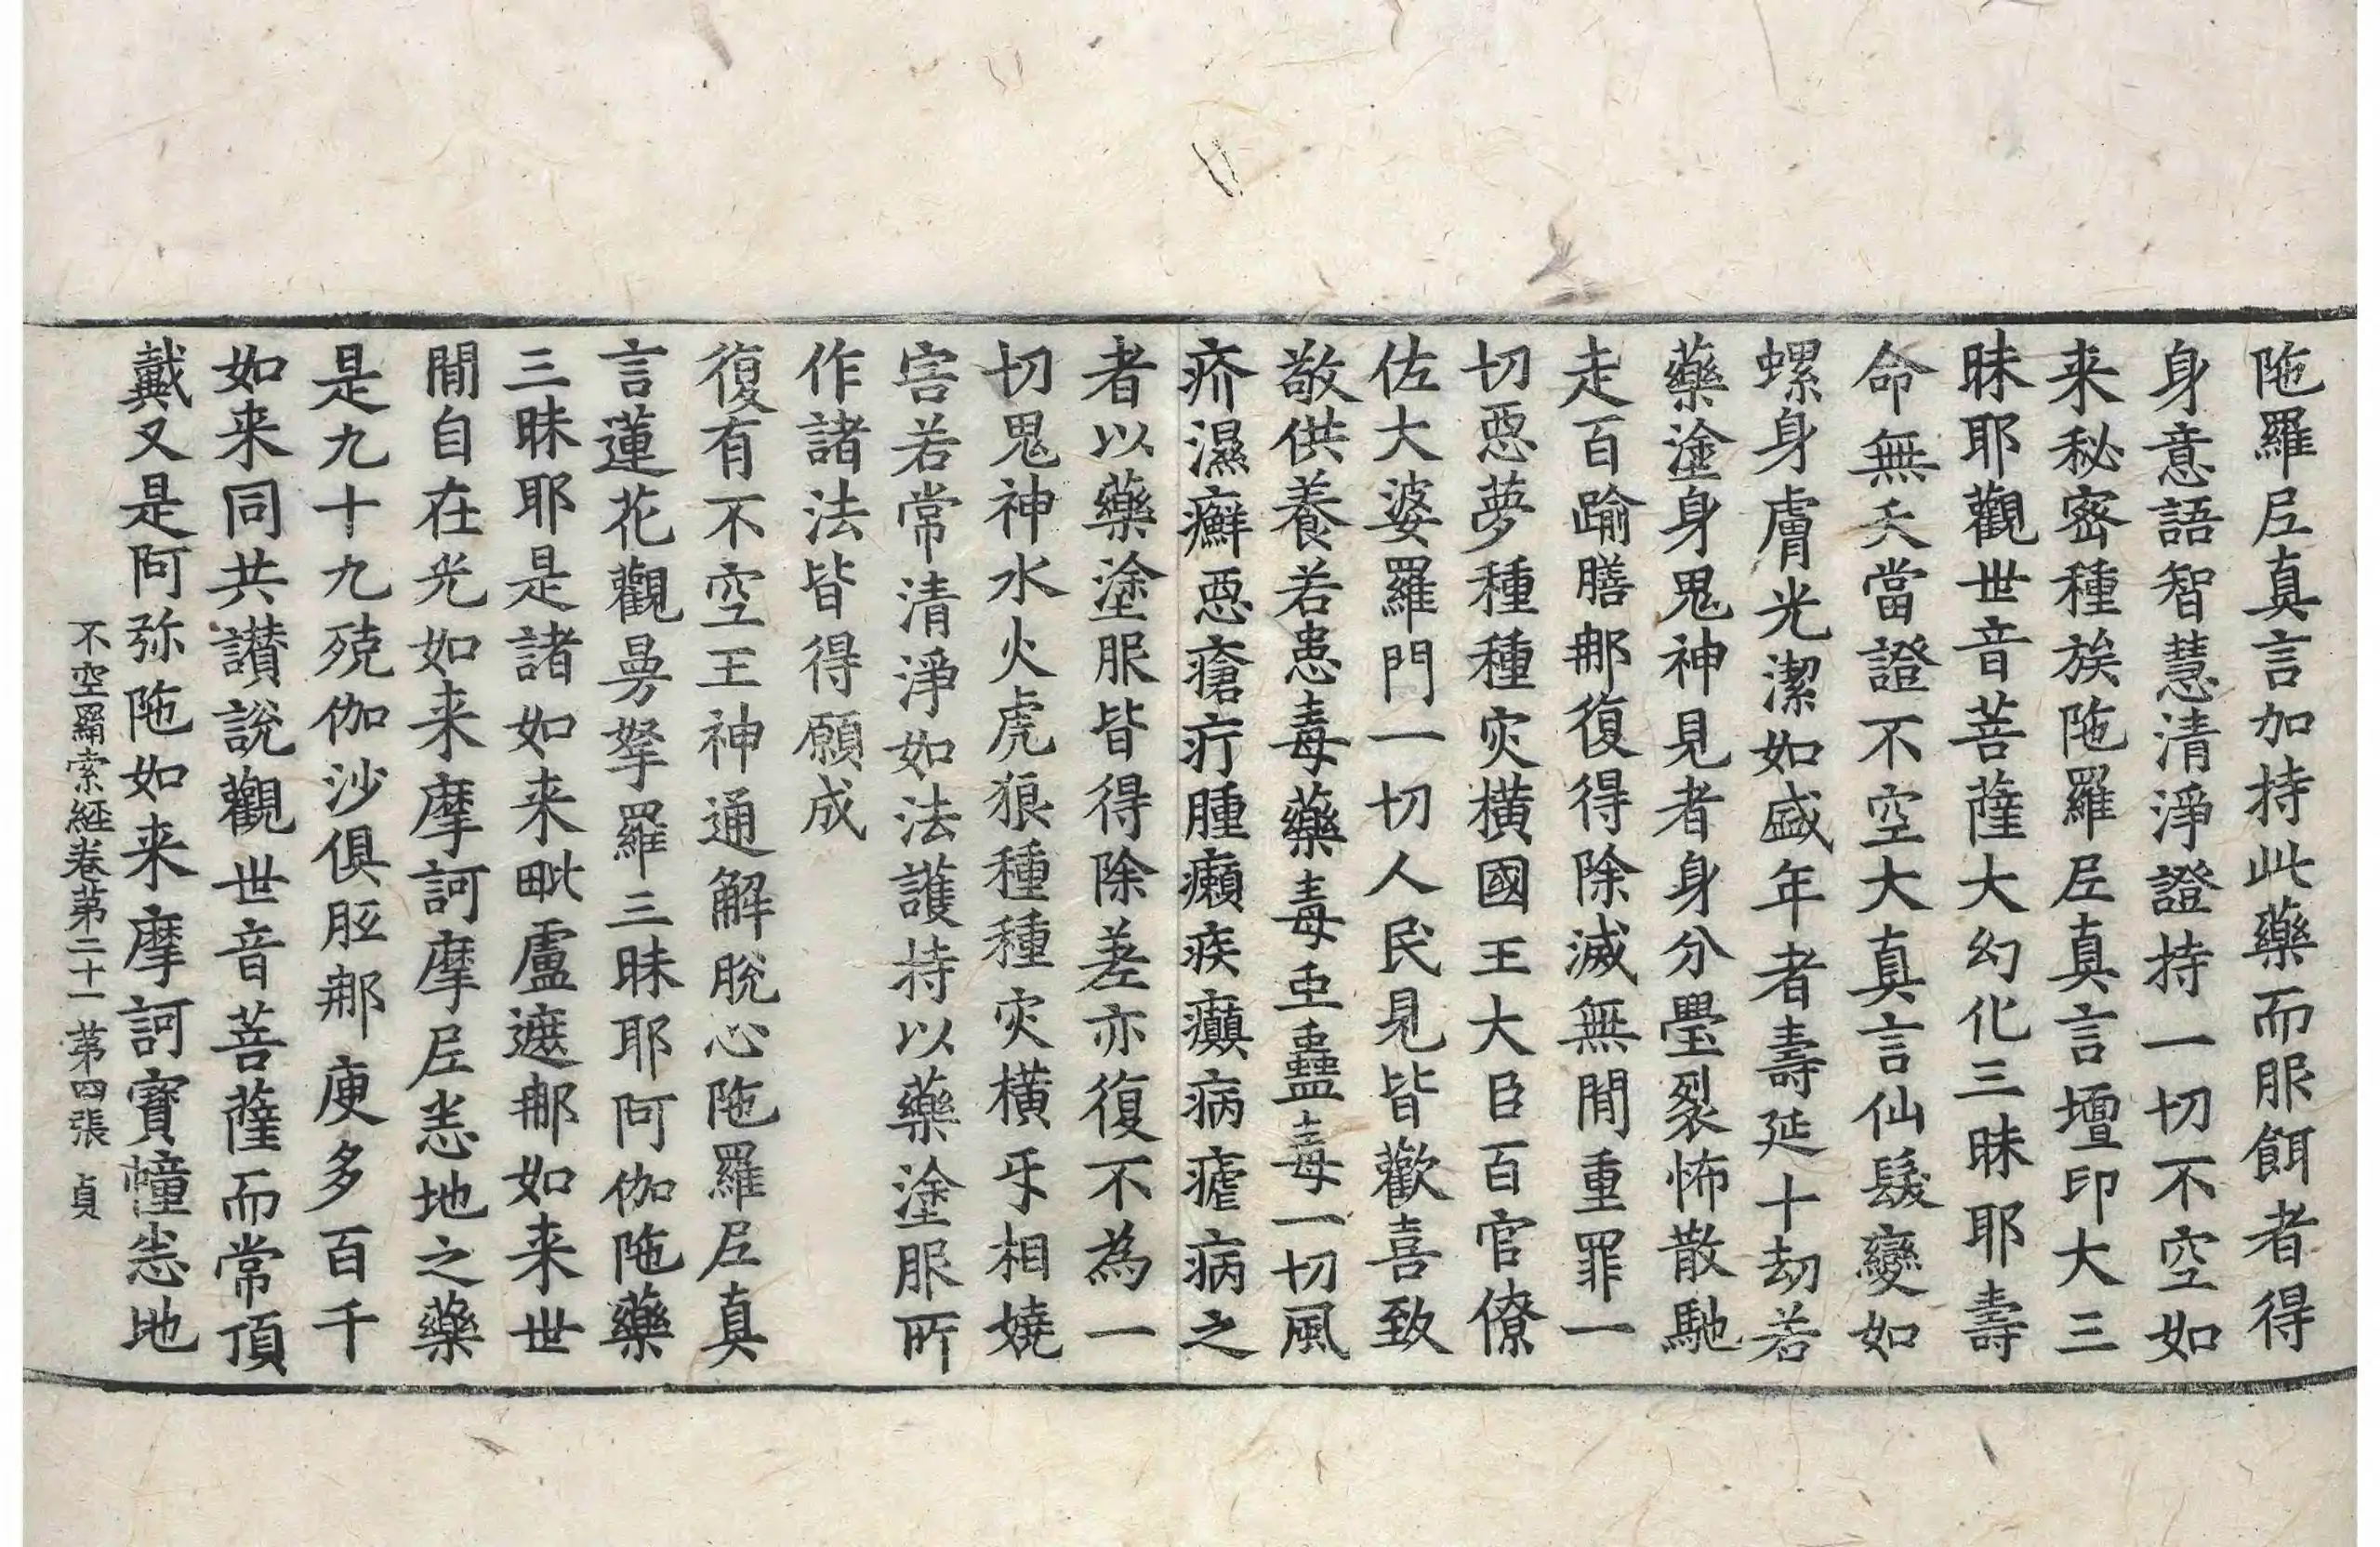 陁羅𡰱真言加持此藥而服餌者得
身意語智慧清淨證持一切不空如
来秘密種族陁羅𡰱真言壇印大三
昧耶觀世音菩薩大幻化三昧耶壽
命無夭當證不空大真言仙髮變如
螺身膚光潔如盛年者壽延十劫若
藥塗身鬼神見者身分舋裂怖散馳
走百踰膳那復得除滅無間重罪一
切惡夢種種灾橫國王大臣百官僚
佐大婆羅門一切人民見皆歡喜致
敬供養若患毒藥毒虫蠱毒一切風
疥濕癬惡瘡疔腫癩疾癲病瘧病之
者以藥塗服皆得除差亦復不為一
切鬼神水火虎狼種種灾橫㸦相嬈
害若常清淨如法護持以藥塗服所
作諸法皆得願成
復有不空王神通解脫心陁羅𡰱真
言蓮花觀曼拏羅三昧耶阿伽陁藥
三昧耶是諸如来毗盧遮那如来世
間自在光如来摩訶摩𡰱悉地之藥
是九十九殑伽沙俱胝那庾多百千
如来同共讃說觀世音菩薩而常頂
戴又是阿弥陁如来摩訶寶幢悉地
不空羂索経卷第二十一 第四張 貞